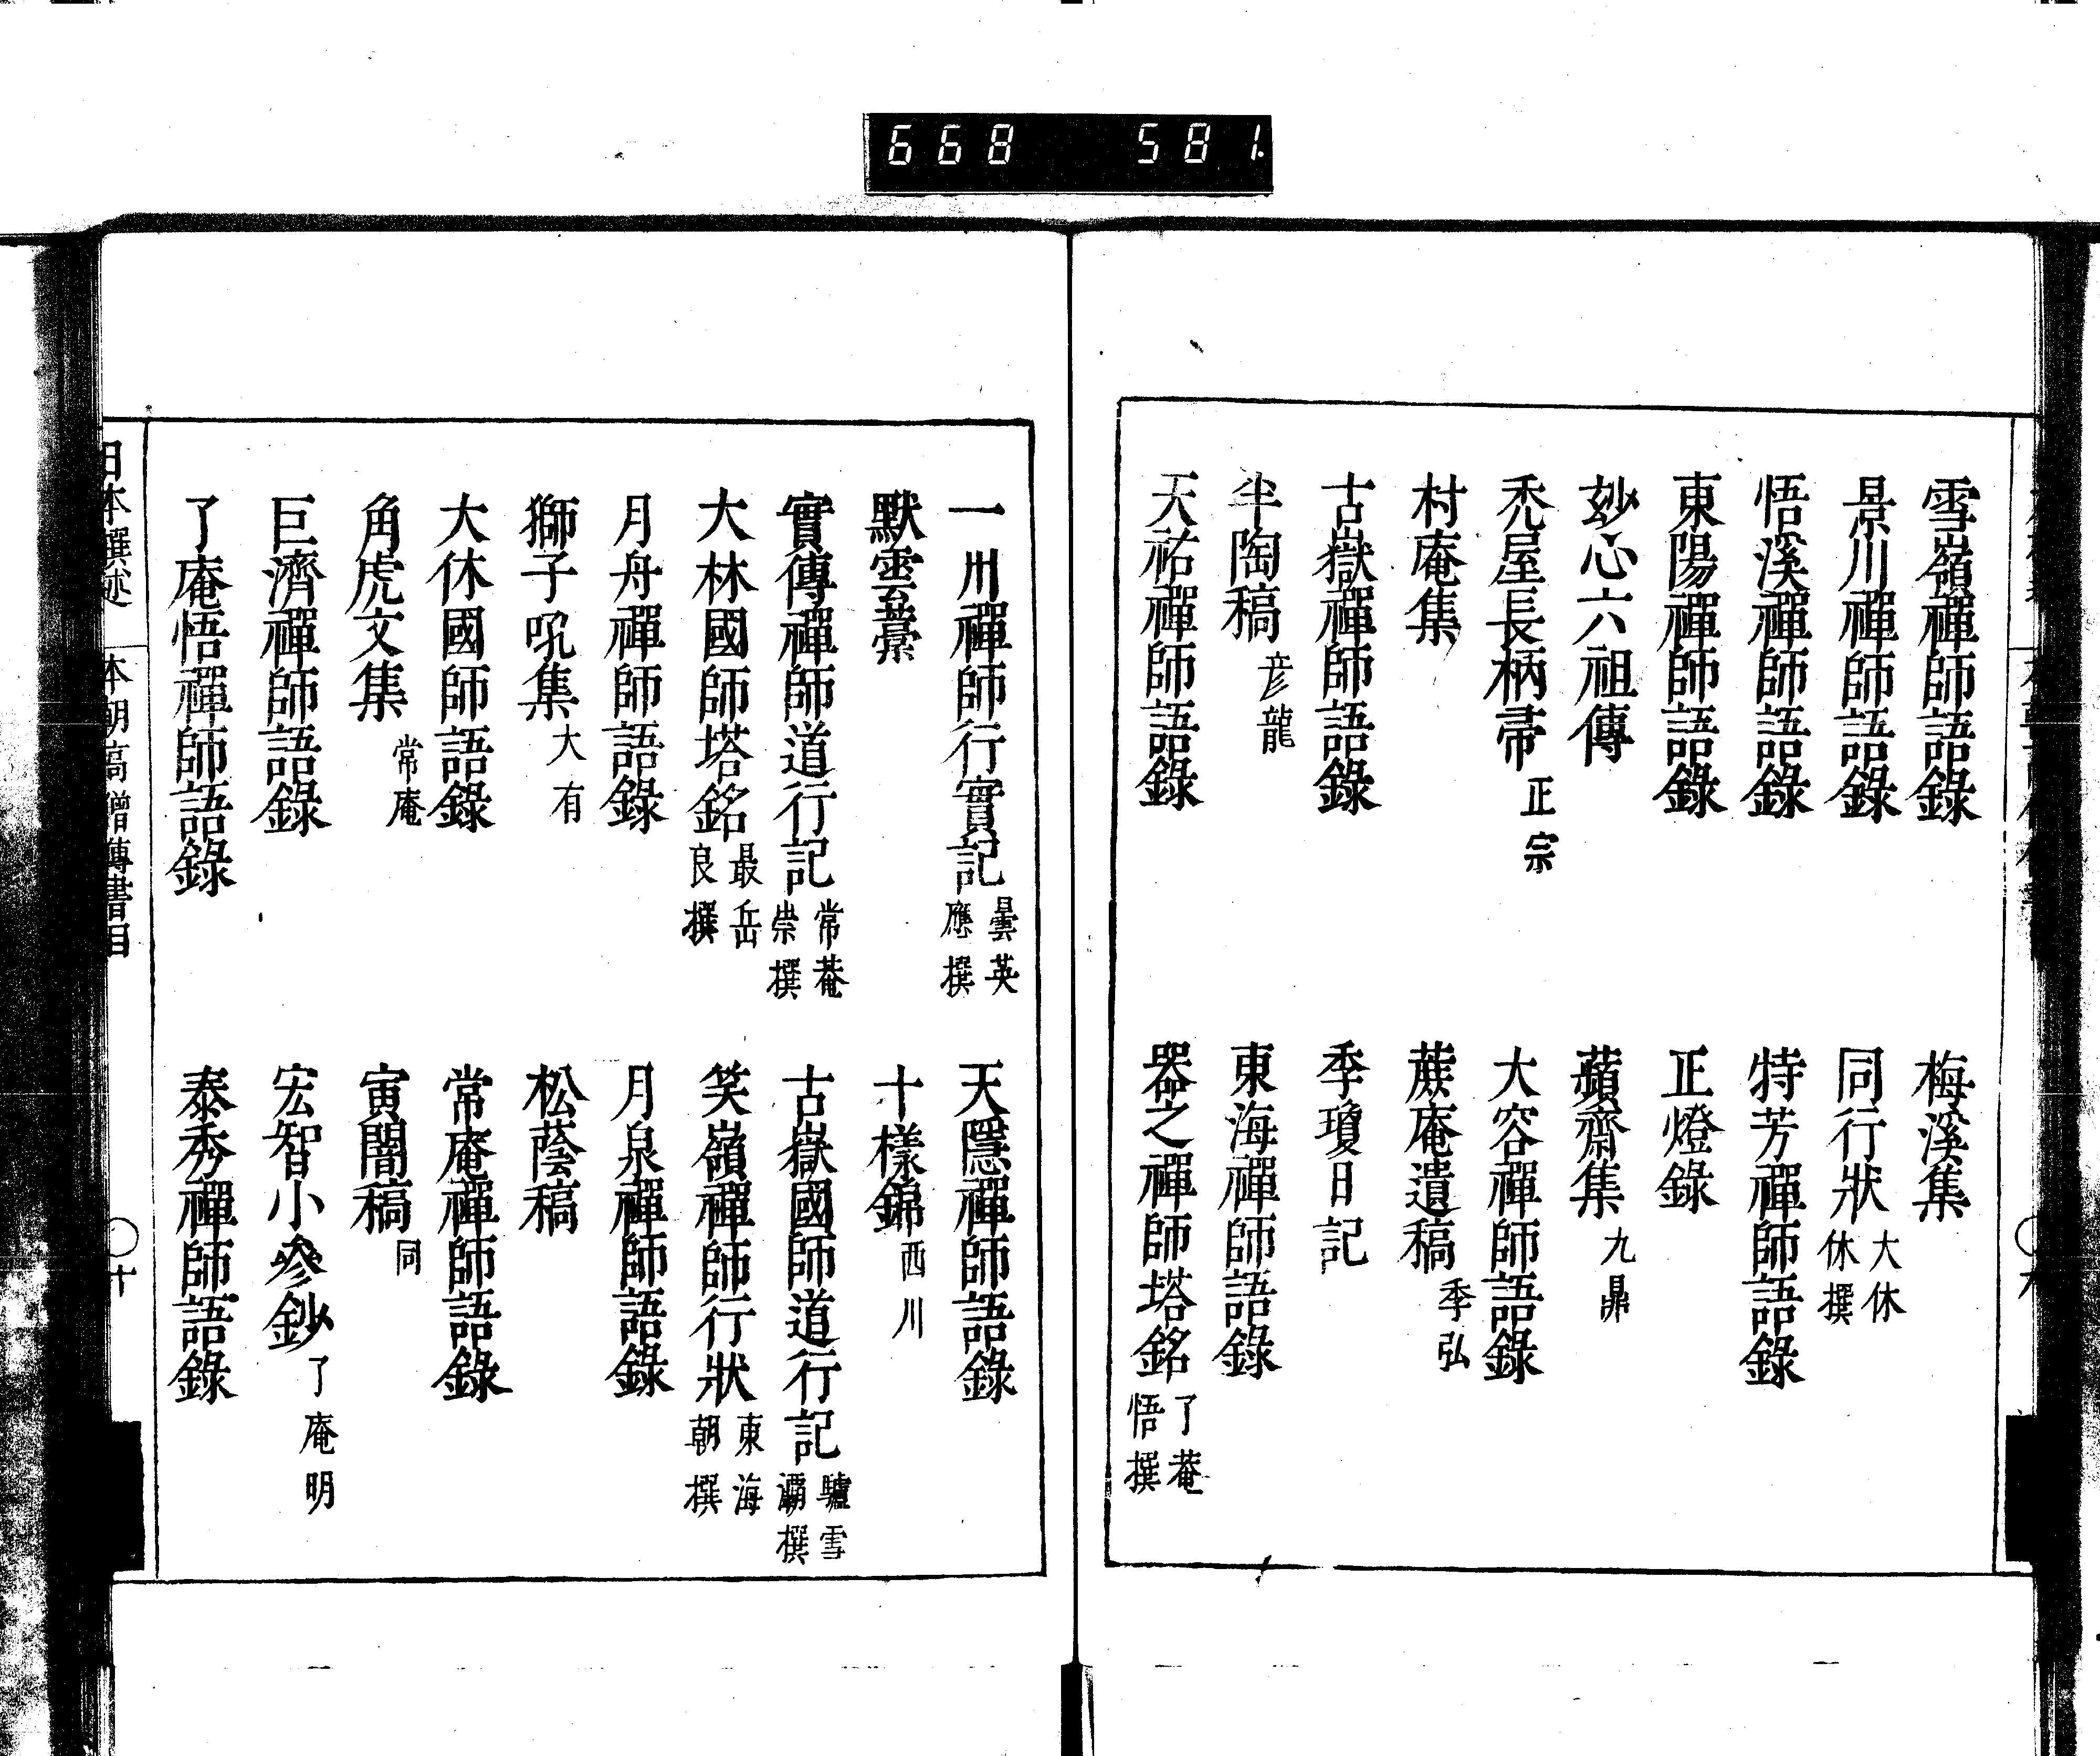 668 581.
雪嶺禪師語錄 梅溪集
景川禪師語錄 同行狀 大休休撰
悟溪禪師語錄 特芳禪師語錄
東陽禪師語錄 正燈錄
玅心六祖傳 蘋齋集 九鼎
禿屋長柄帚 正宗 大容禪師語錄
村庵集 蔗庵遺稿 季弘
古嶽禪師語錄 季瓊日記
半陶稿 彦龍 東海禪師語錄
天祐禪師語錄 器之禪師塔銘 了菴悟撰
一州禪師行實記 曇英應撰 天隱禪師語錄
默雲藁 十樣錦 西川
實傳禪師道行記 常菴崇撰 古嶽國師道行記 驢雪灞撰
大林國師塔銘 最岳良撰 笑嶺禪師行狀 東海朝撰
月舟禪師語錄 月泉禪師語錄
獅子吼集 大有 松蔭稿
大休國師語錄 常庵禪師語錄
角虎文集 常庵 寅闇稿 同
巨濟禪師語錄 宏智小參鈔 了庵明
了庵悟禪師語錄 泰秀禪師語錄
日本撰述 本朝高僧傳書目 〇十